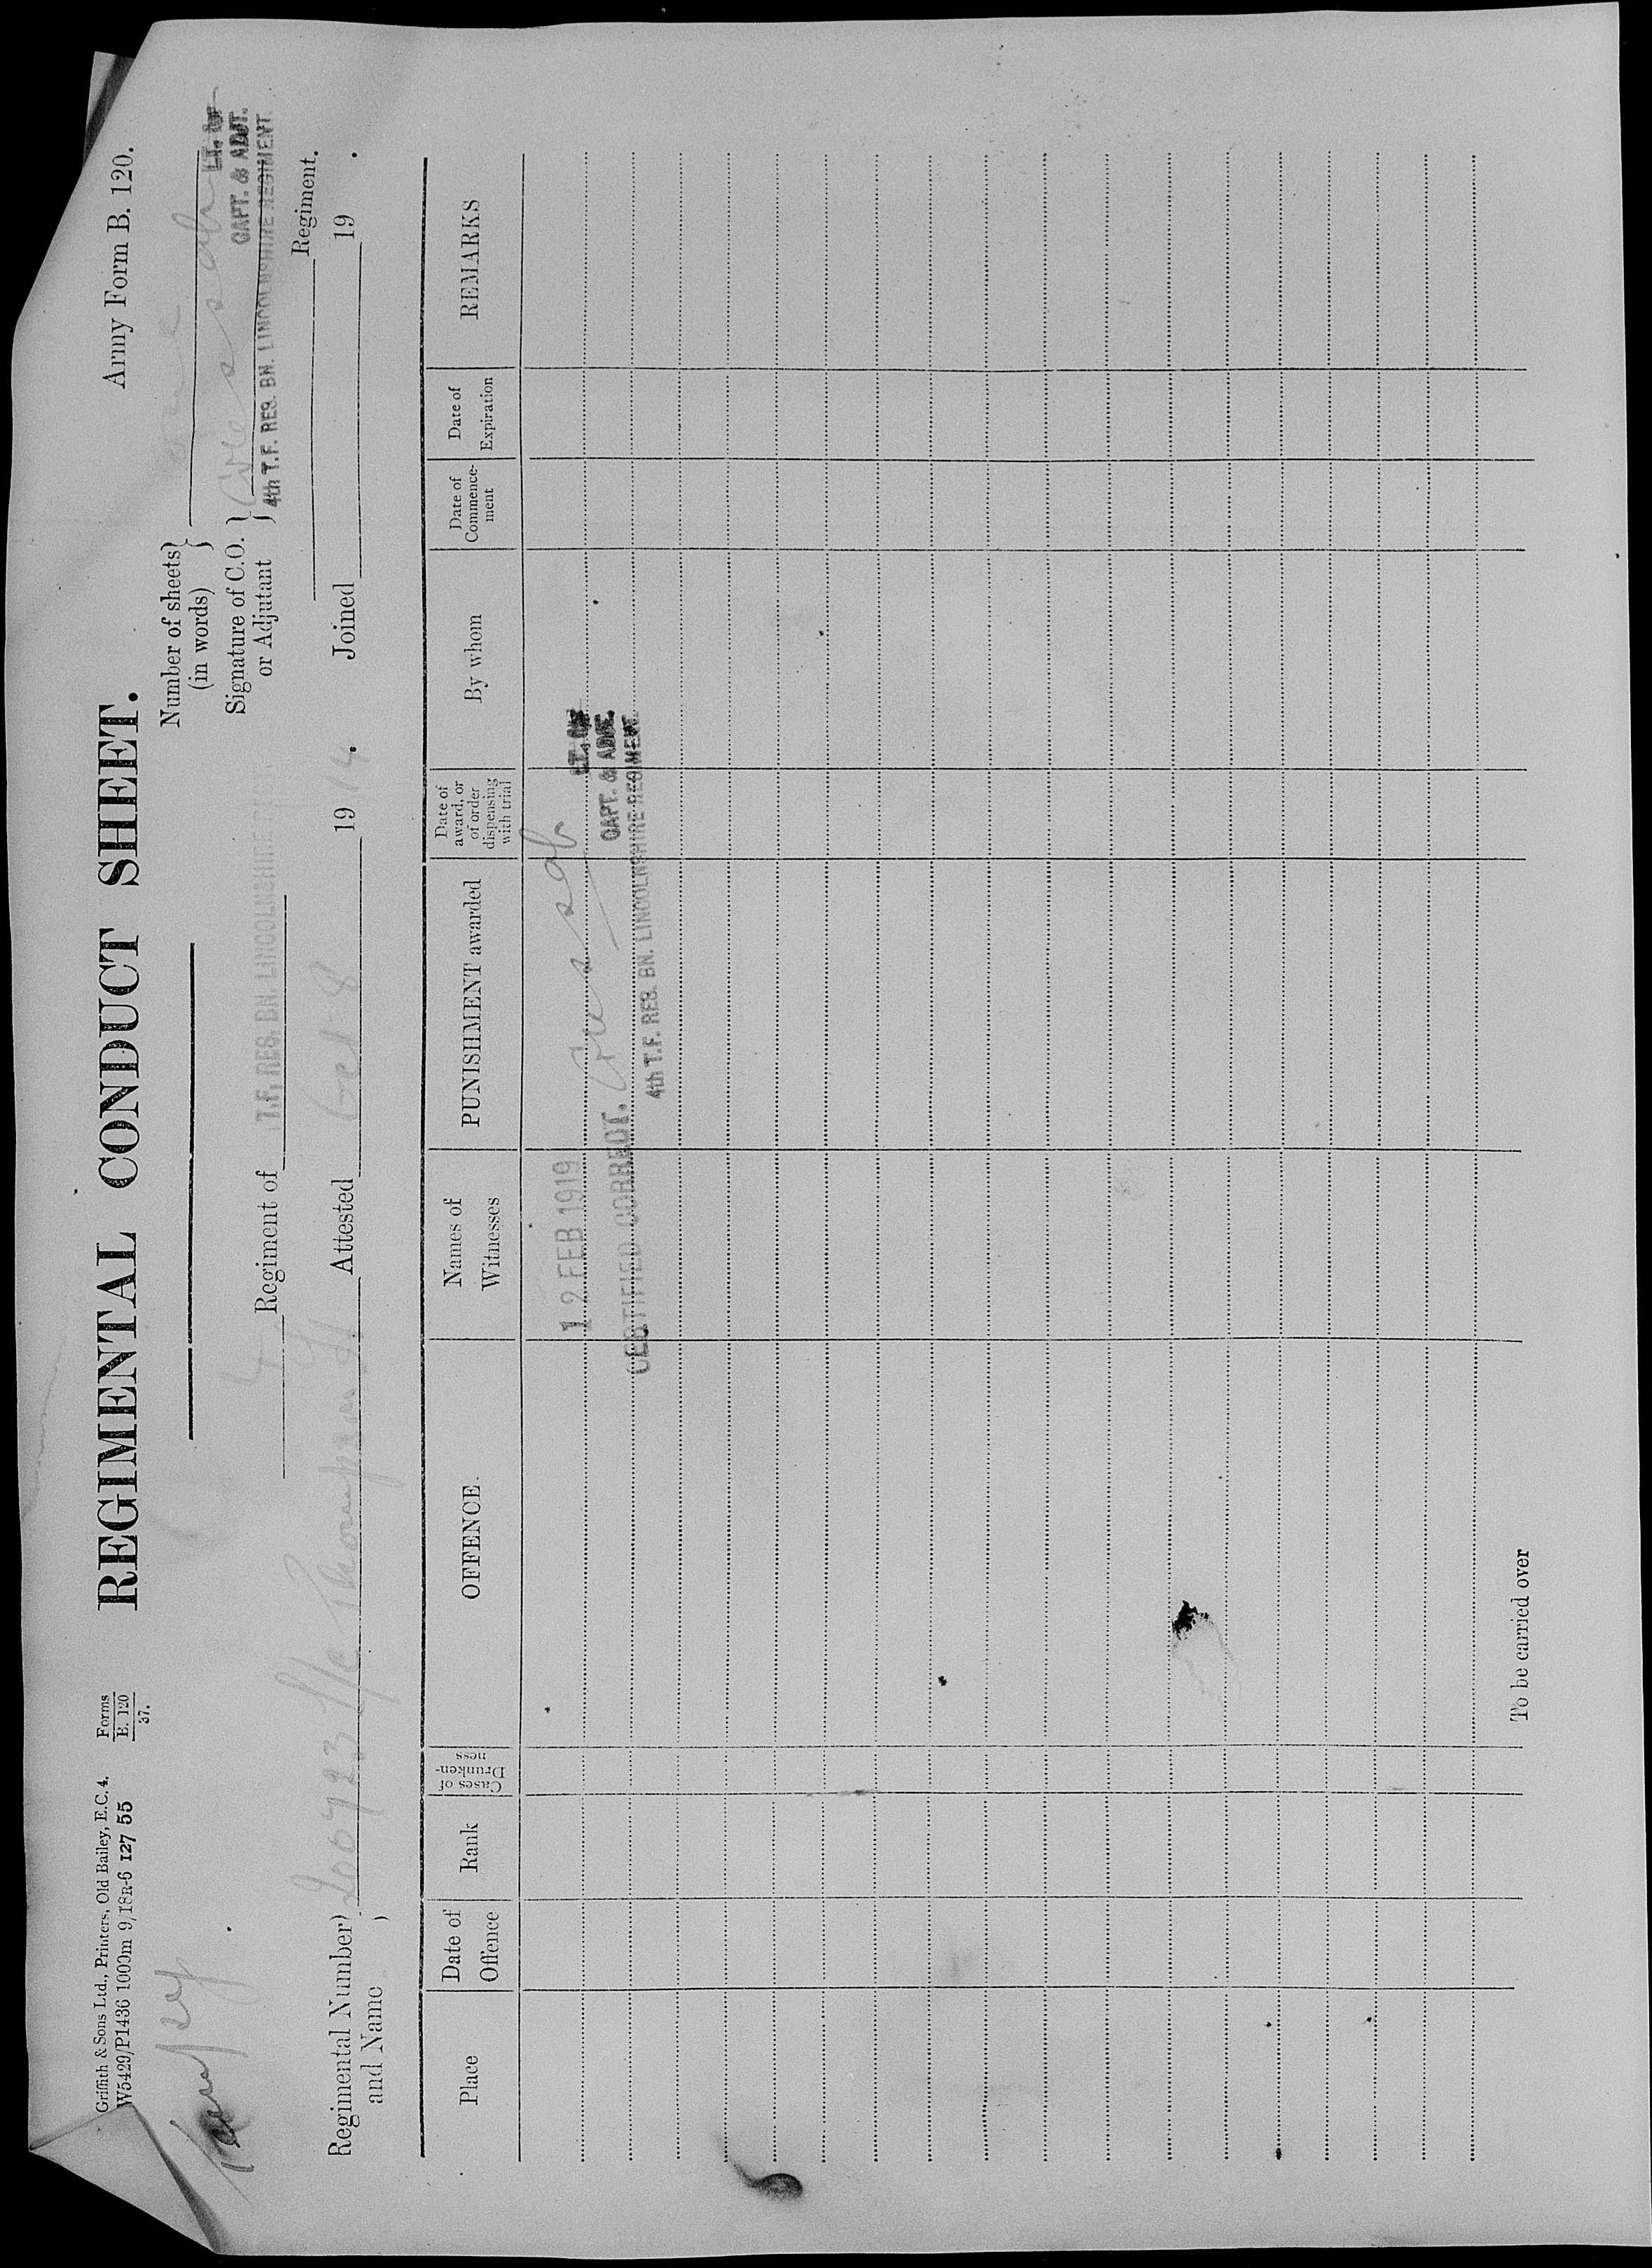 Griffith & Sons Ltd., Printers, Old Bailey, E.C. 4.
W5429/P1436 1000m 9/18R-6 127 55
Forms
E. 120
37.
REGIMENTAL CONDUCT SHEET.
Army Form B. 120.
Number of sheets
(in words)
Signature of C.O.
or Adjutant
LT. &
CAPT. & ADJT.
4th T.F. RES. BN. LINCOLNSHIRE REGIMENT.
4 Regiment of T.F. RES. BN. LINCOLNSHIRE
Regiment.
Regimental Number
and Name
200723 L/c Thompson H Attested Oct 8 1914. Joined 19 .
Place
Date of
Offence
Rank
Cases of
Drunken-
ness
OFFENCE
Names of
Witnesses
PUNISHMENT awarded
Date of
award, or
of order
dispensing
with trial
By whom
Date of
Commence-
ment
Date of
Expiration
REMARKS
12 FEB 1919
LT. &
CERTIFIED CORRECT.
CAPT. & ADJT.
4th T.F. RES. BN. LINCOLNSHIRE REGIMENT.
To be carried over